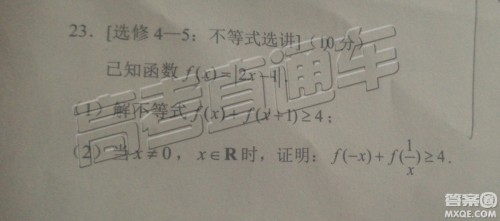 23. [选修 4—5：不等式选讲]（10 分）
已知函数 f(x)=|2x-1|.
（1）解不等式 f(x)+f(x+1)≥4；
（2）当 x≠0，x∈R 时，证明：f(-x)+f(1/x)≥4.
高考直通车
答案圈